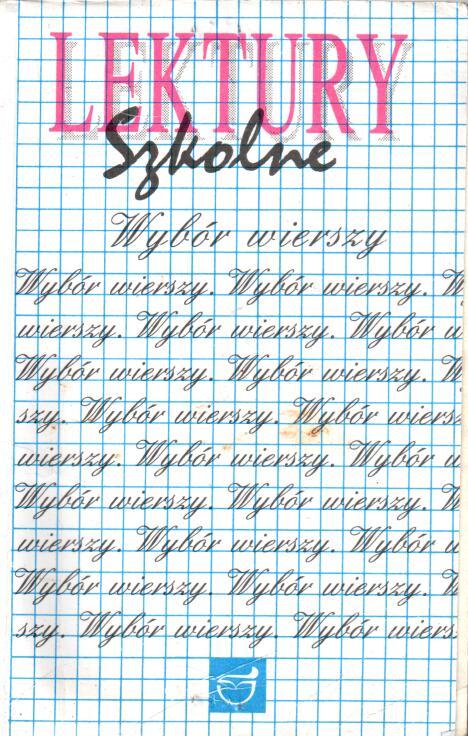 LEKTURY
Szkolne
Wybór wierszy
Wybór wierszy. Wybór wierszy. W
wierszy. Wybór wierszy. Wybór w
Wybór wierszy. Wybór wierszy. W
szy. Wybór wierszy. Wybór wiersz
wierszy. Wybór wierszy. Wybór w
Wybór wierszy. Wybór wierszy. W
wierszy. Wybór wierszy. Wybór w
Wybór wierszy. Wybór wierszy. W
szy. Wybór wierszy. Wybór wiersz